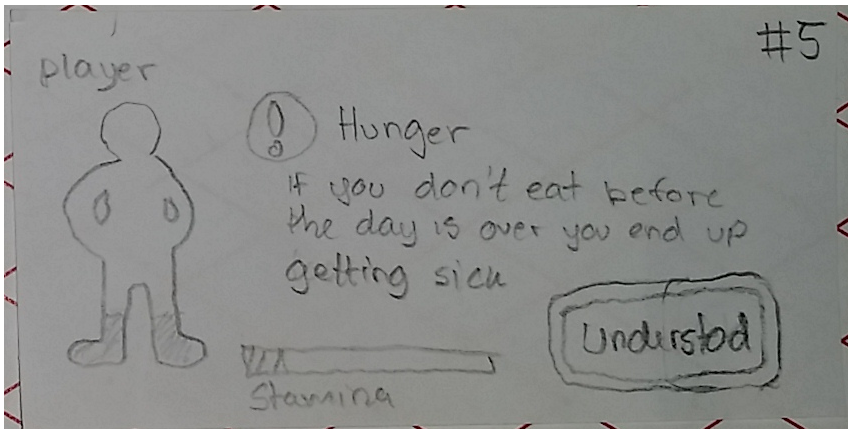 #5
player
Hunger
If you don't eat before
the day is over you end up
getting sick
Understod
Stamina